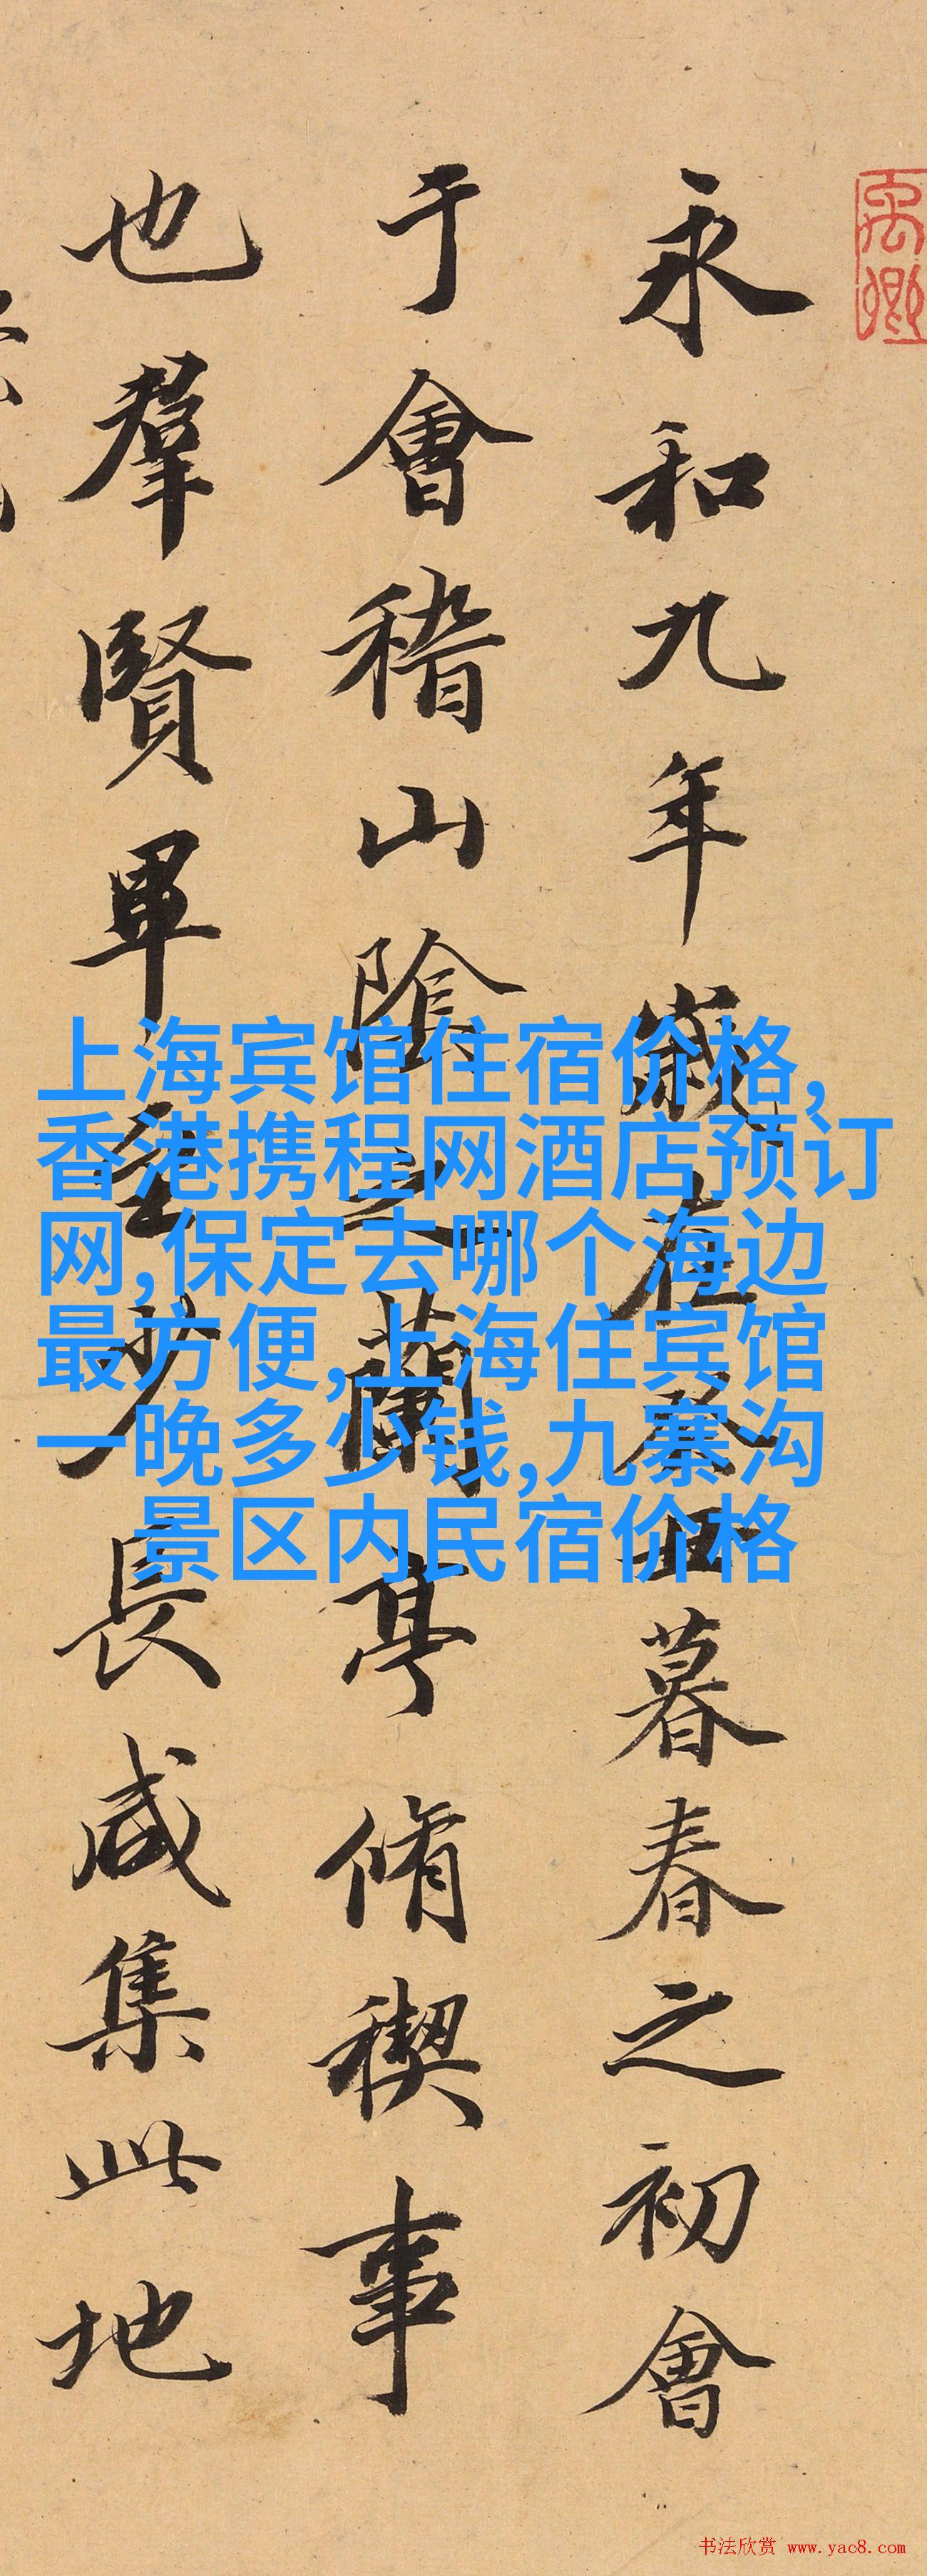 永和九年歲在癸丑暮春之初會
于會稽山陰之蘭亭脩稧事
也羣賢畢至少長咸集此地
上海宾馆住宿价格,
香港携程网酒店预订
网,保定去哪个海边
最方便,上海住宾馆
一晚多少钱,九寨沟
景区内民宿价格
书法欣赏 www.yac8.com